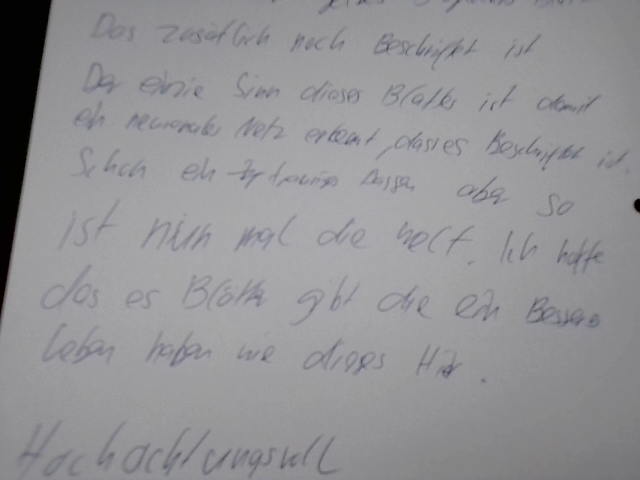 Das zusätlich noch Beschriftet ist
Der einzie Sinn dieses Blattes ist damit
ein neuronales Netz erkennt, das es Beschriftet ist.
Schon ein trauriges Dassen aber so
ist nun mal die welt. Ich hoffe
das es Blätter gibt die ein Besseres
leben haben wie dieses Hier.
Hochachtungsvoll